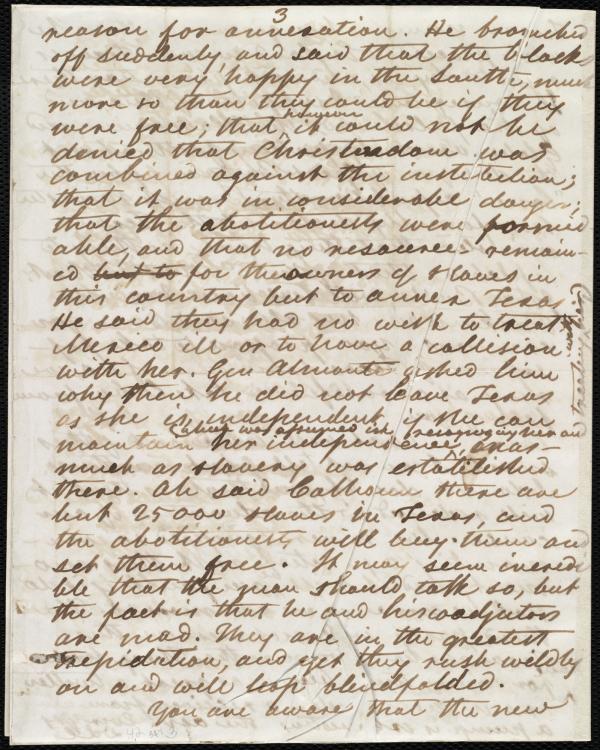 3
reason for annexation. He branched
off suddenly and said that the blacks
were very happy in the South, much
more so than they could be if they
were free; that, however it could not be
denied that Christendom was
combined against the institution;
that it was in considerable danger;
that the abolitionists were formid
able, and that no resource remain-
ed but to for the owners of slaves in
this country but to annex Texas.
He said they had no wish to treat
Mexico ill or to have a collision
with her. Gen Almonte asked him
why then he did not leave Texas
as she is independent if she can
what was assumed in recognising her and
maintain her independence, inas-
treating with her
much as slavery was established
there. Ah said Calhoun there are
but 25000 slaves in Texas, and
the abolitionists will buy them and
set them free. It may seem incredi
ble that the man should talk so, but
the fact is that he and his coadjutors
are mad. They are in the greatest
trepidation, and yet they rush wildly
on and will leap blindfolded.
You are aware that the new